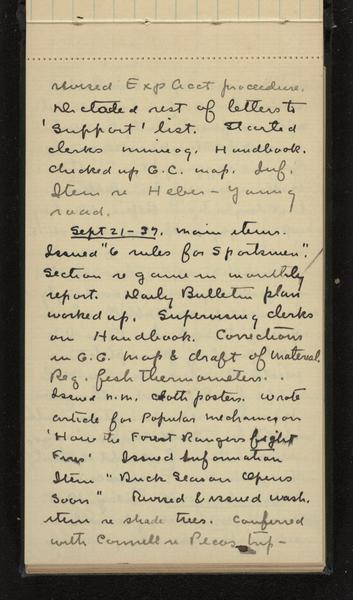 revised Exp Acct procedure.
Dictated rest of letters to
'Support' list. Started
clerks mimeog. Handbook.
Checked up G.C. map. Inf.
Item re Heber - Young
road.
Sept 21-37. Main items.
Issued "6 rules for Sportsmen".
Section re game in monthly
report. Daily Bulletin plan
worked up. Supervising clerks
on Handbook. Corrections
in G.C. map & draft of material.
Req. fish thermometers.
Issued n.m. cloth posters. Wrote
article for Popular Mechanics on
'How the Forest Rangers fight
Fires' Issued Information
Item "Buck Season Opens
Soon" & issued Wash.
item re shade trees. Conferred
with Connell re Pecos trip -